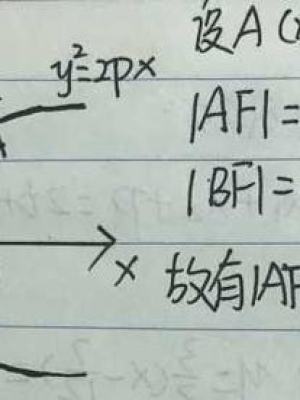 设A(
y²=2px
|AF|=
|BF|=
x
故有|AF